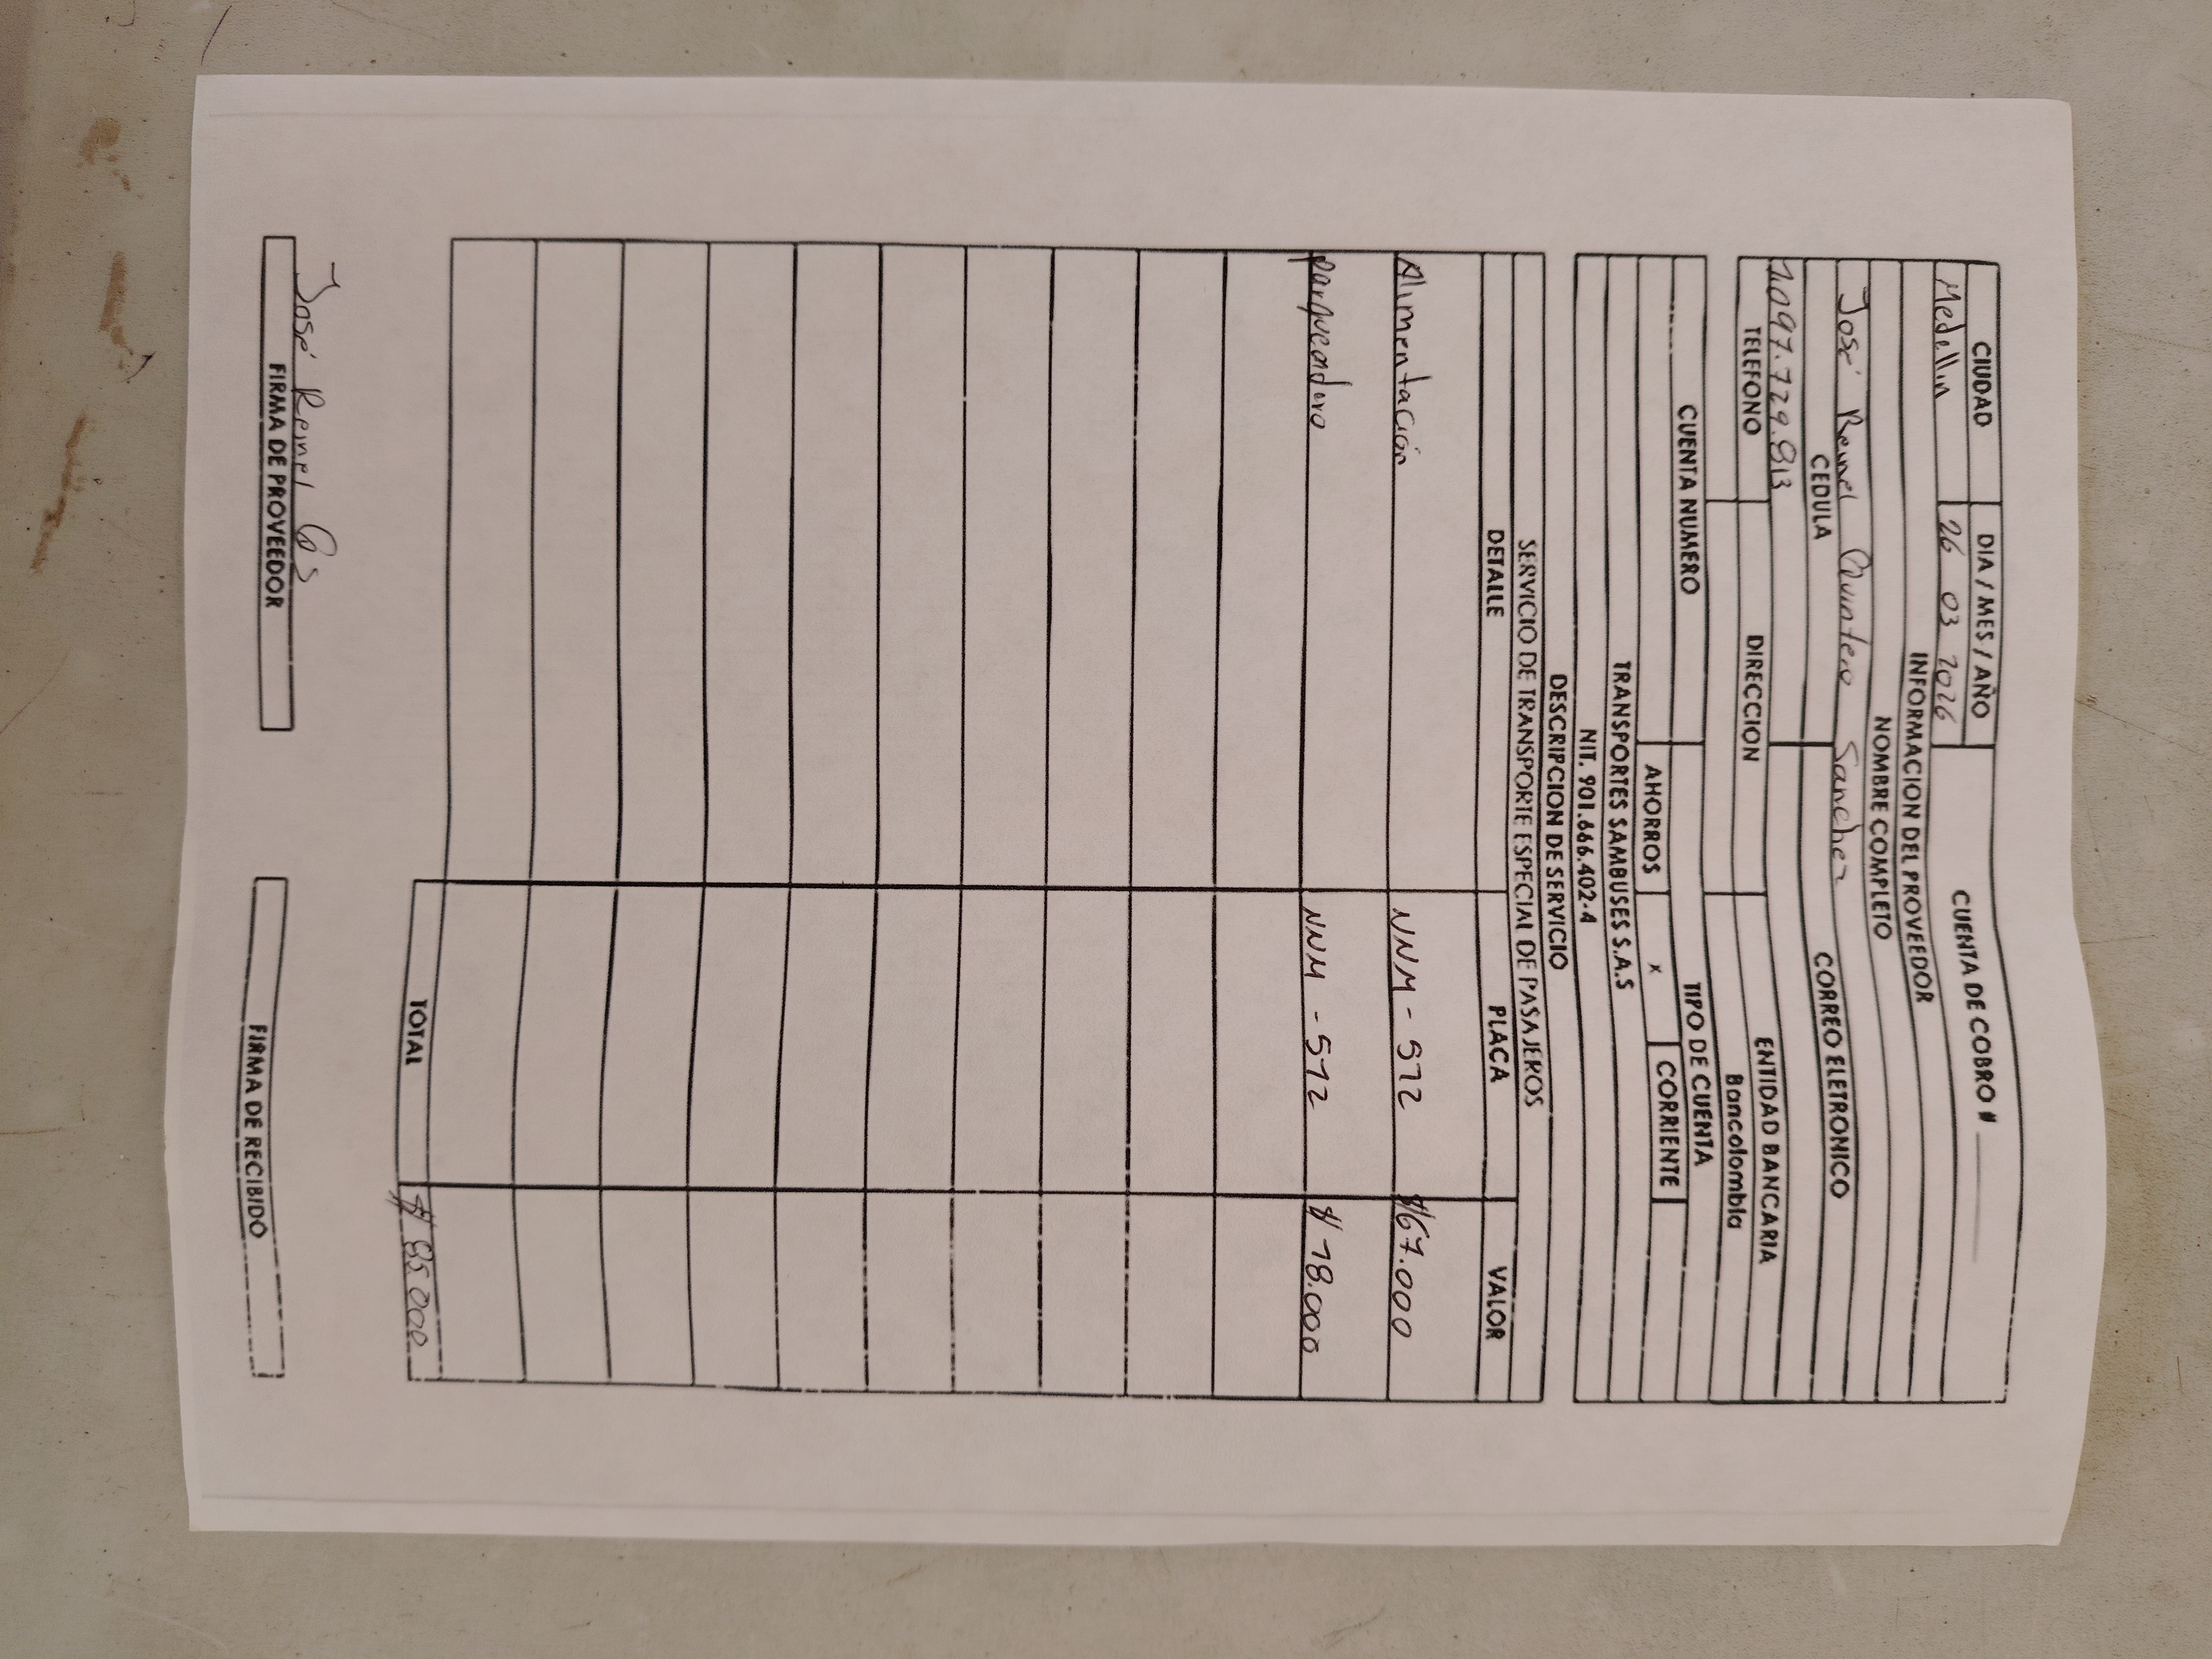 CIUDAD DIA / MES / AÑO CUENTA DE COBRO #
Medellin 26 03 2026
INFORMACION DEL PROVEEDOR
NOMBRE COMPLETO
José Reinel Quintero Sanchez
CEDULA CORREO ELETRONICO
1.097.729.813
TELEFONO DIRECCION ENTIDAD BANCARIA
Bancolombia
CUENTA NUMERO TIPO DE CUENTA
AHORROS x CORRIENTE
TRANSPORTES SAMBUSES S.A.S
NIT. 901.666.402-4
DESCRIPCION DE SERVICIO
SERVICIO DE TRANSPORTE ESPECIAL DE PASAJEROS
DETALLE PLACA VALOR
Alimentación NNM - 572 $67.000
parqueadero NNM - 572 $ 18.000
TOTAL $ 85.000
José Reinel QS
FIRMA DE PROVEEDOR FIRMA DE RECIBIDO